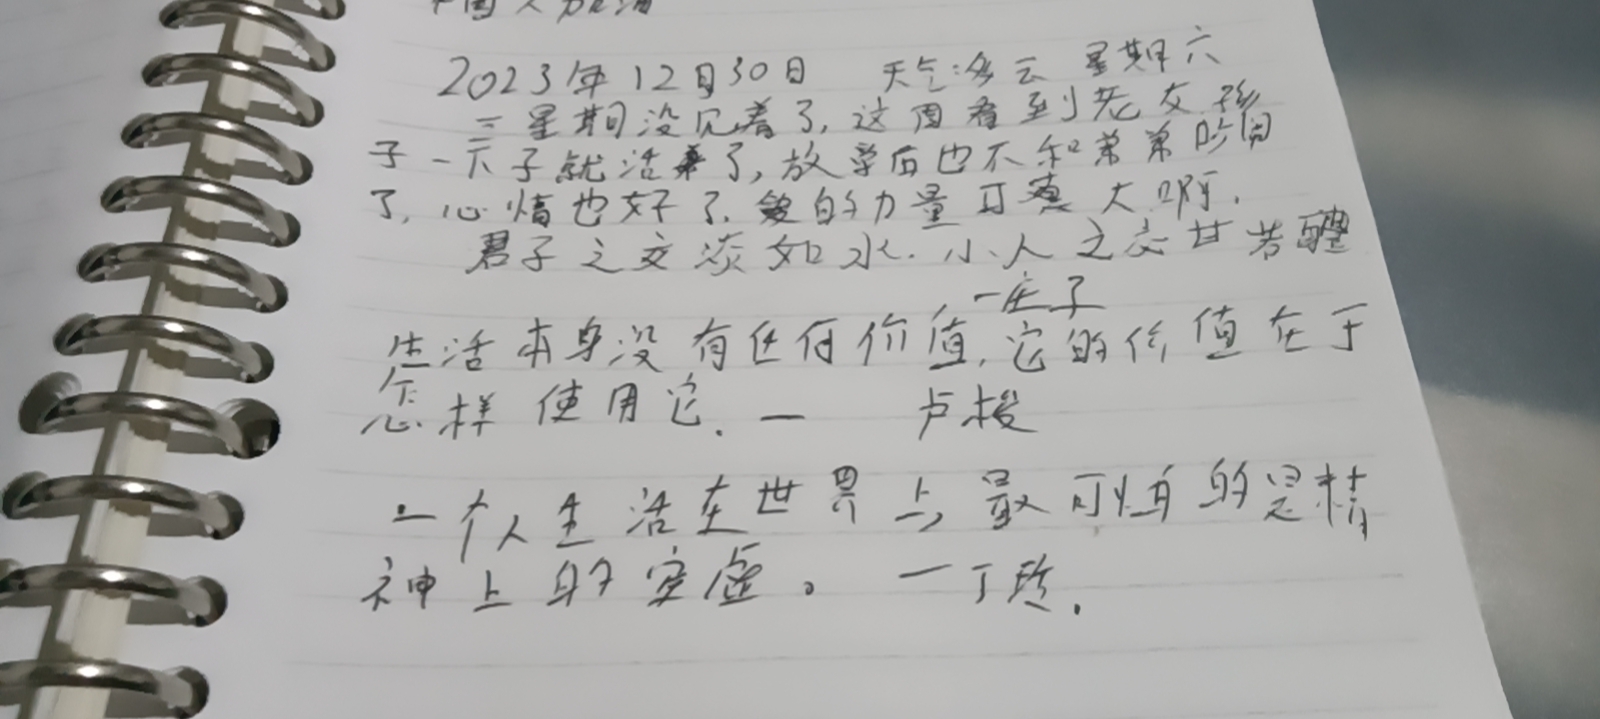 中国人加油
2023年12月30日 天气:多云 星期六
三星期没见着了,这周看到先女孩
子一下子就活来了,放学后也不和弟弟吵闹
了,心情也好了.的力量可真大啊.
君子之交淡如水.小人之交甘若醴
一庄子
生活本身没有任何价值,它的价值在于
怎样使用它.一 卢梭
一个人生活在世界上最可怕的是精
神上的空虚。一丁玲.